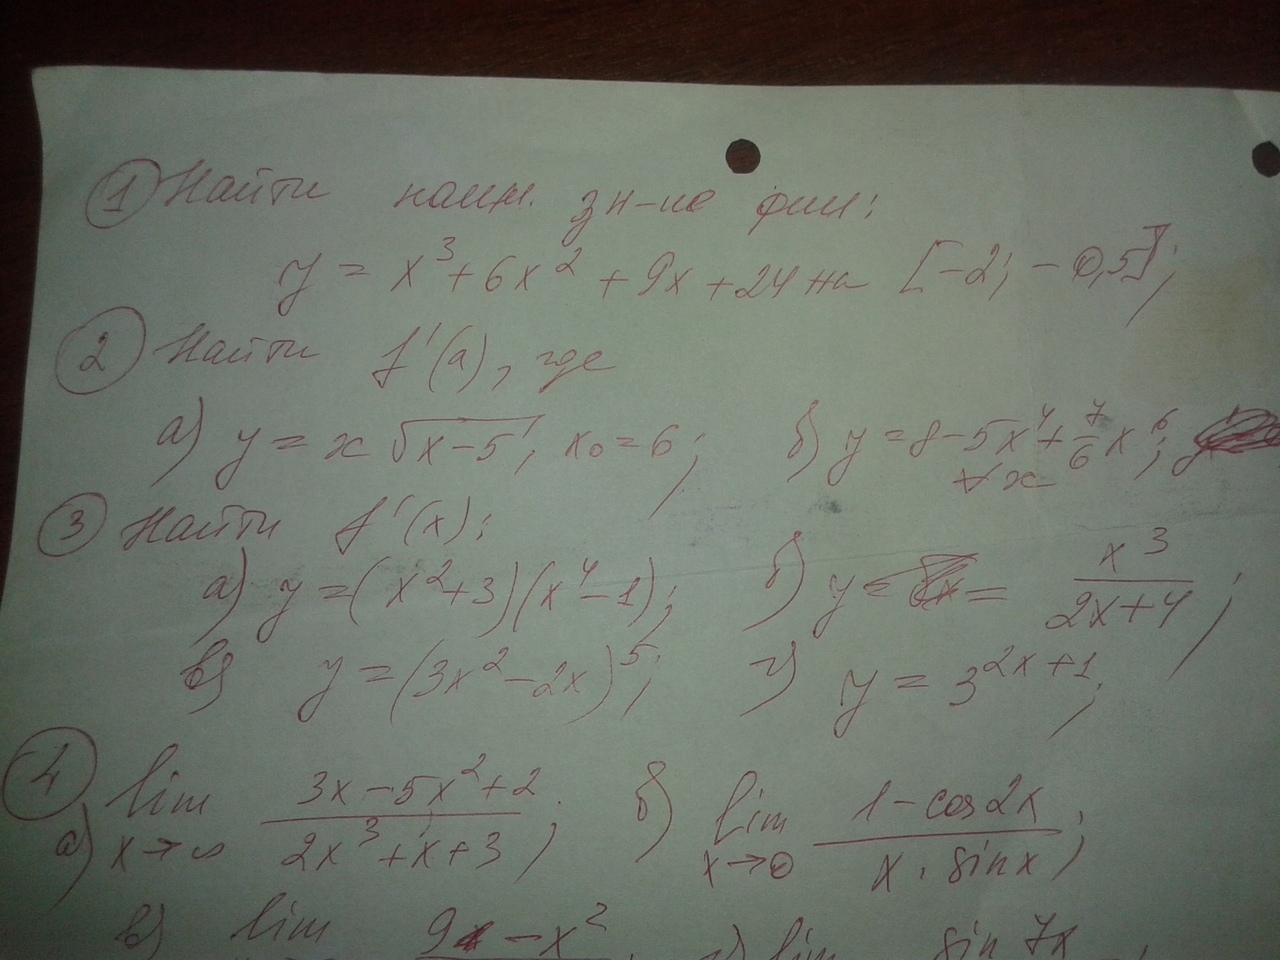 ① Найти наим. зн-ие фции:
y = x³ + 6x² + 9x + 24 на [-2; -0,5];
② Найти f'(a), где
а) y = x√(x-5), x₀ = 6; б) y = 8 - 5x⁴ + 7/6 x⁶;
∀x
③ Найти f'(x):
а) y = (x²+3)(x⁴-1); б) y = x³/(2x+4);
в) y = (3x²-2x)⁵; г) y = 3^(2x+1);
④
а) lim x→∞ (3x-5x²+2)/(2x³+x+3); б) lim x→0 (1-cos2x)/(x·sinx);
в) lim 9-x² г) lim sin 7x